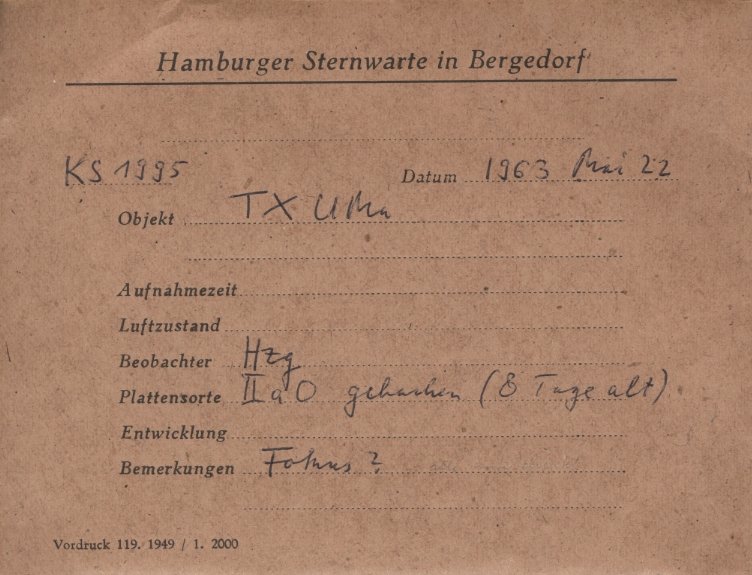 Hamburger Sternwarte in Bergedorf
KS 1995 Datum 1963 Mai 22
Objekt TX UMa
Aufnahmezeit
Luftzustand
Beobachter Hzg
Plattensorte IIaO gebacken (8 Tage alt)
Entwicklung
Bemerkungen Fokus?
Vordruck 119. 1949 / 1. 2000